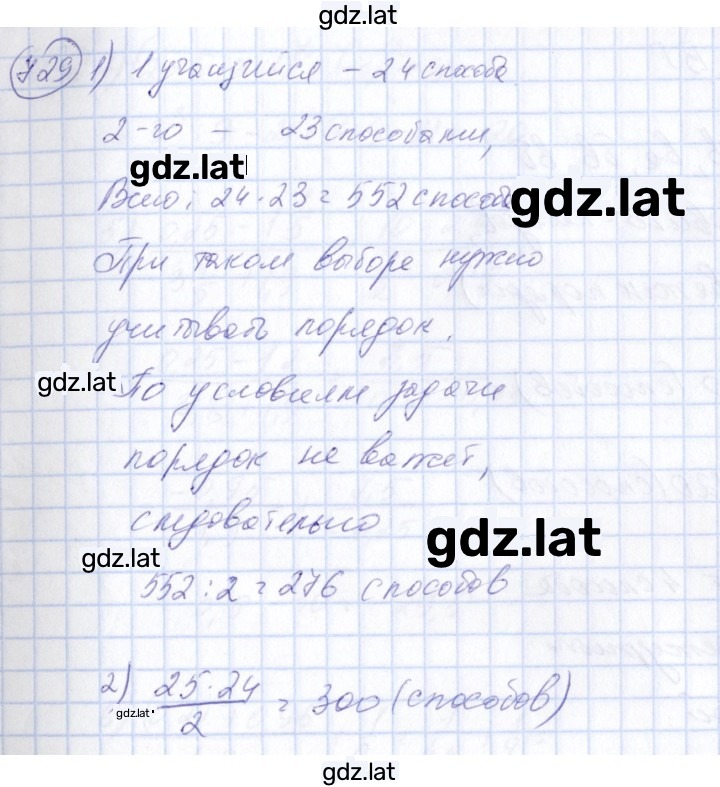 gdz.lat
729 1) 1 учащийся – 24 способа
2-го – 23 способами,
gdz.lat
Всего: 24·23 = 552 способа
gdz.lat
При таком выборе нужно
учитывать порядок.
gdz.lat
По условиям задачи
порядок не важен,
следовательно
gdz.lat
gdz.lat
552 : 2 = 276 способов
2) 25·24 / 2 = 300 (способов)
gdz.lat
gdz.lat